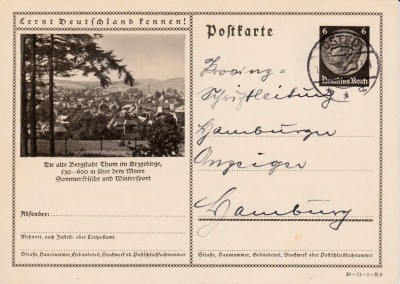 Lernt Deutschland kennen!
Die alte Bergstadt Thum im Erzgebirge,
530-600 m über dem Meere
Sommerfrische und Wintersport
Absender:
Wohnort, auch Zustell- oder Leitpostamt
Straße, Hausnummer, Gebäudeteil, Stockwerk od. Postschließfachnummer
Postkarte
6 6
Deutsches Reich
Schriftleitung
Hamburger
Anzeiger
Hamburg
Straße, Hausnummer, Gebäudeteil, Stockwerk oder Postschließfachnummer